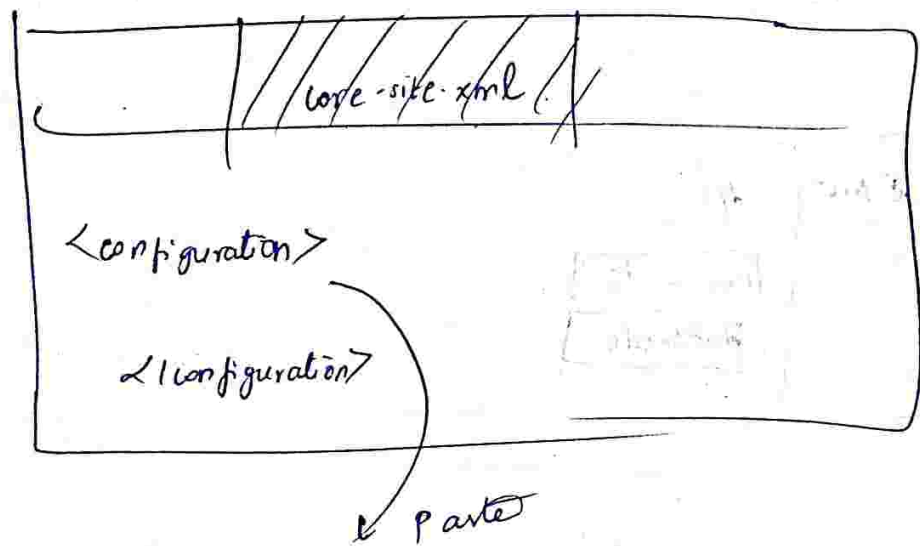 core-site.xml
<configuration>
</configuration>
paste